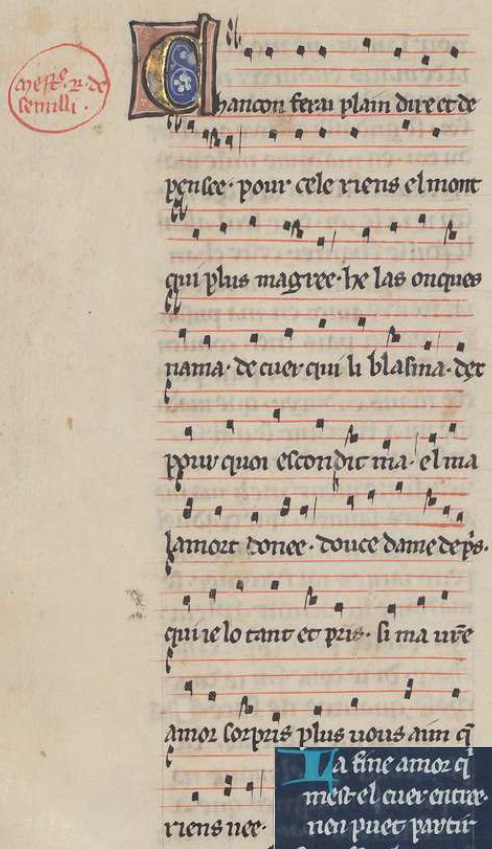 mestᵉ. r. de
semilli.
Chancon ferai plain dire et de
pensee· pour cele riens el mont
qui plus magree· he las onques
nama· de cuer qui li blasma· dex
pour quoi escondit ma· el ma
lamort donee· douce dame de pⁱs·
qui ie lo tant et pris· si ma vr̄e
amor sorpris plus uous aim q̄
riens nee·
La fine amor q̄
mest el cuer entree·
nen puet partir